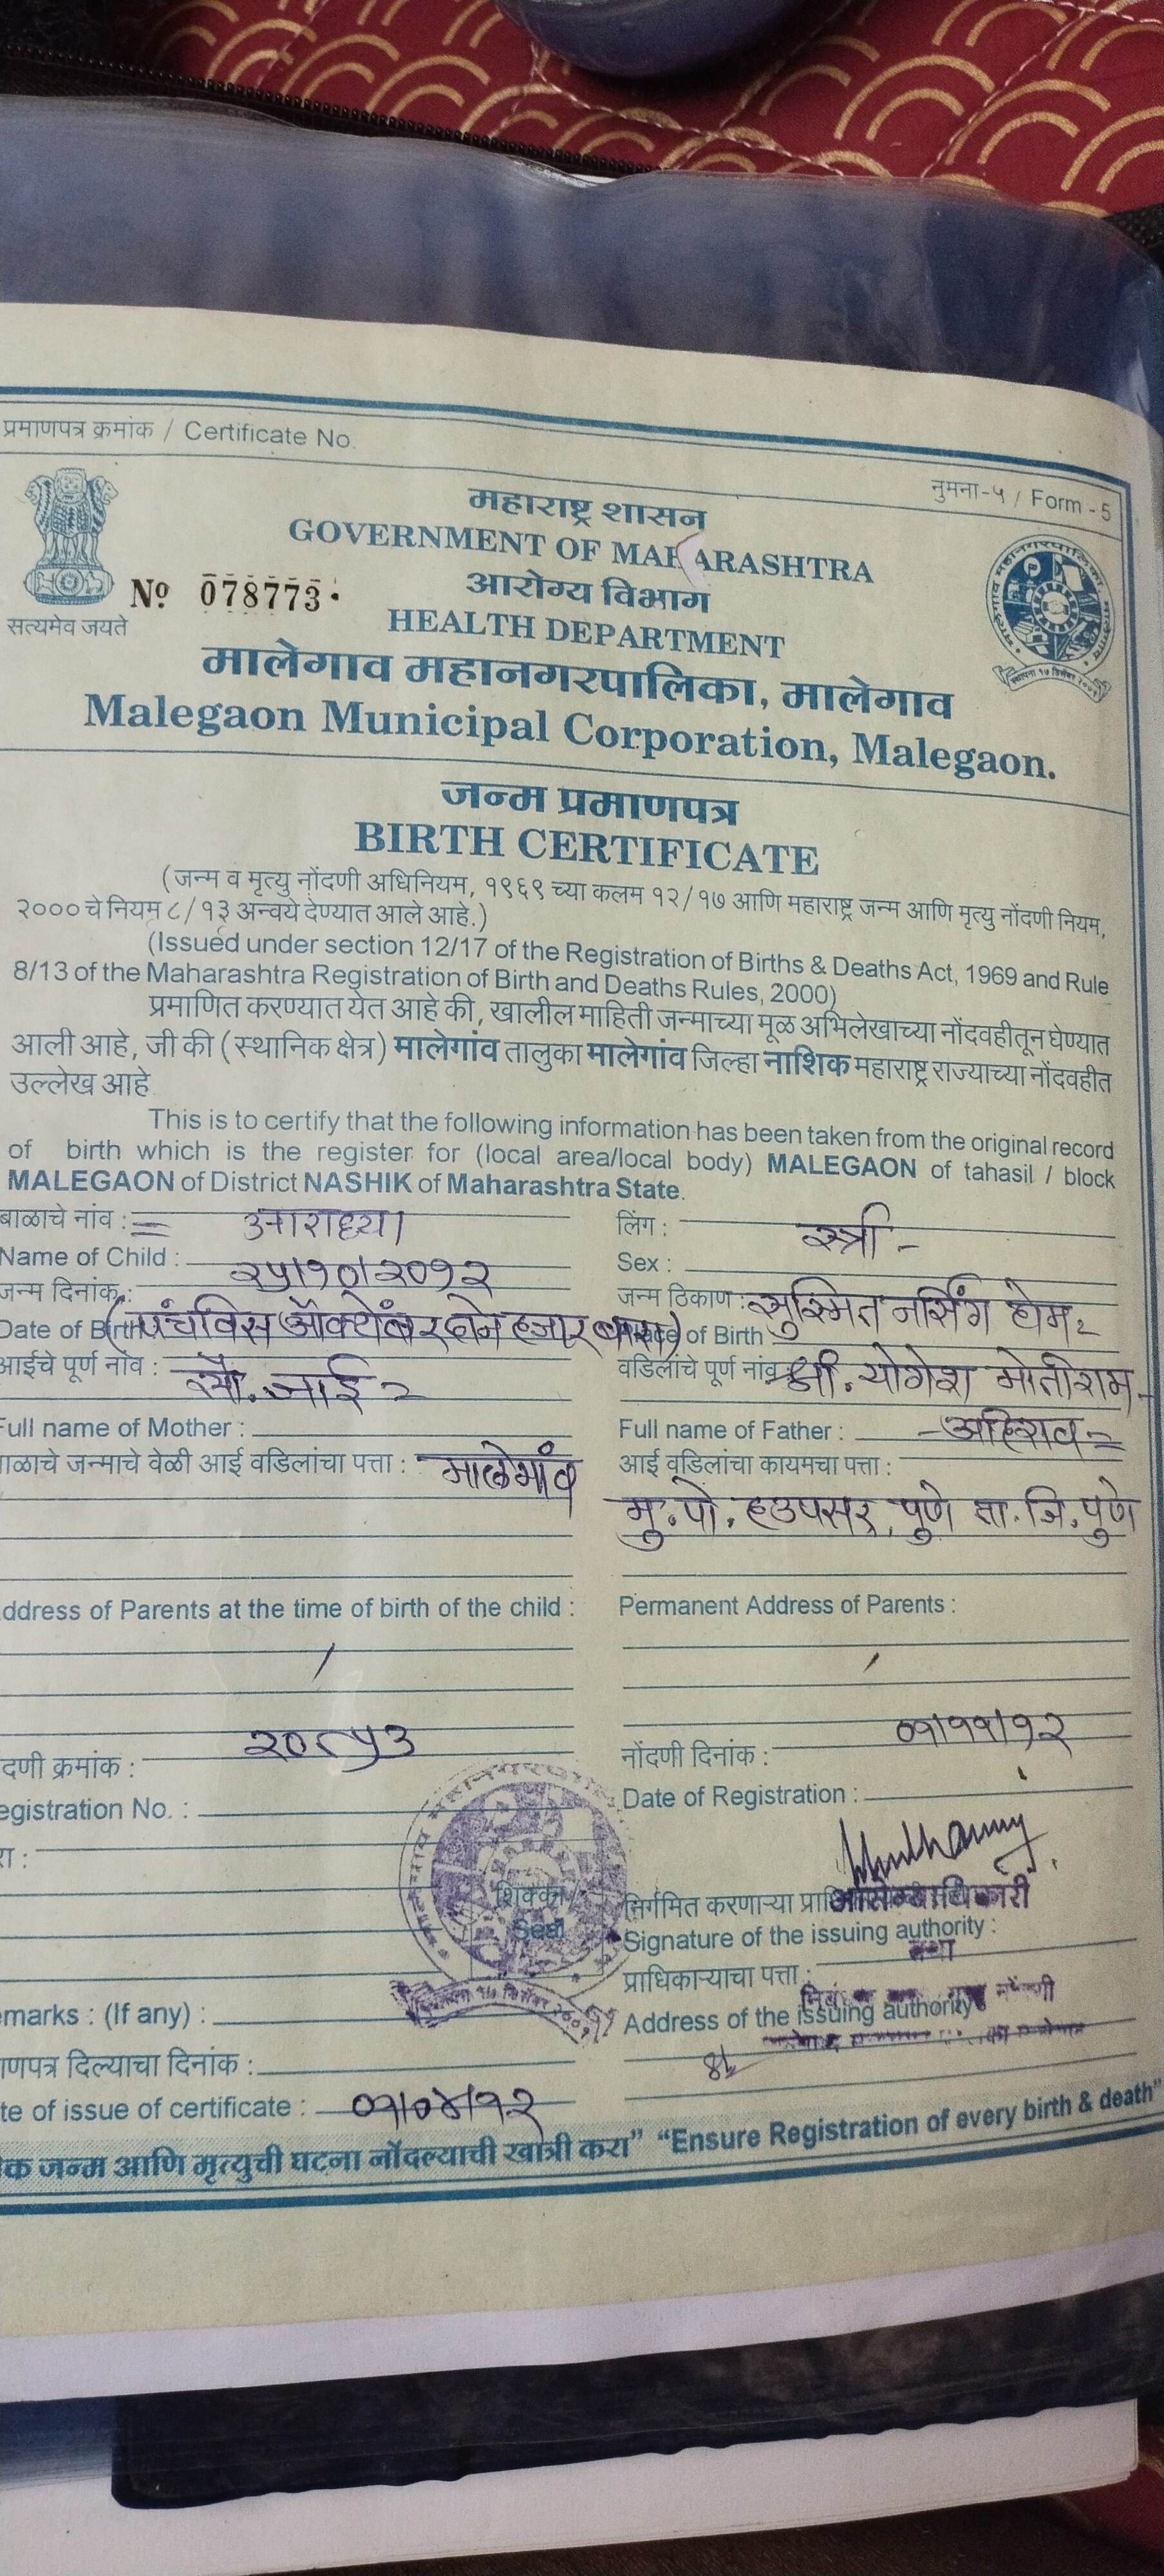 प्रमाणपत्र क्रमांक / Certificate No.
नुमना-५ / Form - 5
महाराष्ट्र शासन
GOVERNMENT OF MAHARASHTRA
आरोग्य विभाग
Nº 078773
HEALTH DEPARTMENT
सत्यमेव जयते
मालेगाव महानगरपालिका, मालेगाव
Malegaon Municipal Corporation, Malegaon.
जन्म प्रमाणपत्र
BIRTH CERTIFICATE
(जन्म व मृत्यु नोंदणी अधिनियम, १९६९ च्या कलम १२/१७ आणि महाराष्ट्र जन्म आणि मृत्यु नोंदणी नियम,
२००० चे नियम ८/१३ अन्वये देण्यात आले आहे.)
(Issued under section 12/17 of the Registration of Births & Deaths Act, 1969 and Rule
8/13 of the Maharashtra Registration of Birth and Deaths Rules, 2000)
प्रमाणित करण्यात येत आहे की, खालील माहिती जन्माच्या मूळ अभिलेखाच्या नोंदवहीतून घेण्यात
आली आहे, जी की (स्थानिक क्षेत्र) मालेगांव तालुका मालेगांव जिल्हा नाशिक महाराष्ट्र राज्याच्या नोंदवहीत
उल्लेख आहे
This is to certify that the following information has been taken from the original record
of birth which is the register for (local area/local body) MALEGAON of tahasil / block
MALEGAON of District NASHIK of Maharashtra State.
बाळाचे नांव : = आराध्या
लिंग : स्त्री -
Name of Child :
Sex :
जन्म दिनांक : २५/१०/२०१२
जन्म ठिकाण : सुस्मित नर्सिंग होम
Date of Birth (पंचविस ऑक्टोंबर दोन हजार बारा)
of Birth
आईचे पूर्ण नांव : सौ. जाई
वडिलांचे पूर्ण नांव श्री. योगेश मोतीराम -
Full name of Mother :
Full name of Father : - अहिराव =
ळाचे जन्माचे वेळी आई वडिलांचा पत्ता : मालेगांव
आई वडिलांचा कायमचा पत्ता :
मु. पो. हडपसर, पुणे ता. जि. पुणे
ddress of Parents at the time of birth of the child :
Permanent Address of Parents :
दणी क्रमांक : २०८५३
नोंदणी दिनांक : ०१/११/१२
egistration No. :
Date of Registration :
रा :
शिक्का /
Seal
निर्गमित करणाऱ्या आरोग्याधिकारी
Signature of the issuing authority :
तथा
प्राधिकाऱ्याचा पत्ता :
नोंदणी
marks : (If any) :
Address of the issuing authority
णपत्र दिल्याचा दिनांक :
te of issue of certificate :
क जन्म आणि मृत्युची घटना नोंदल्याची खात्री करा" "Ensure Registration of every birth & death"